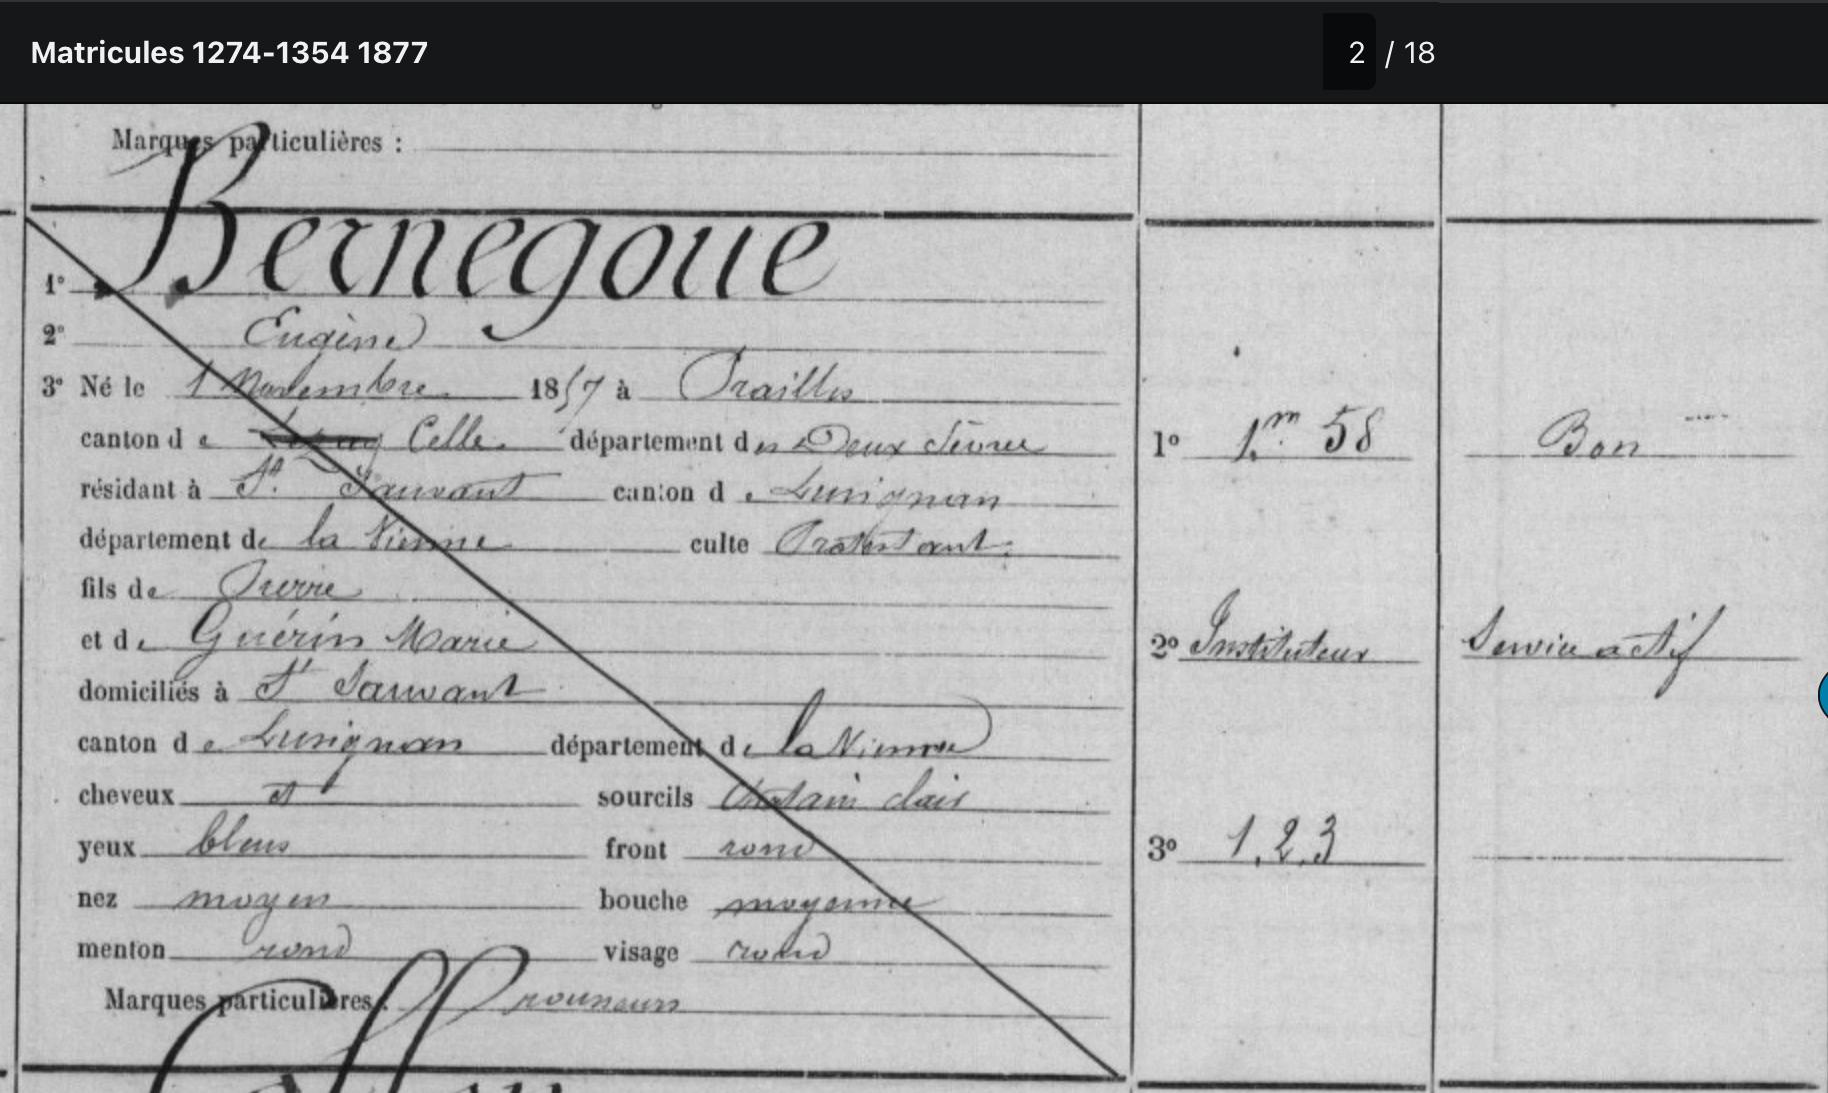 Matricules 1274-1354 1877
2 / 18
Marques particulières :
1° Bernegoue
2° Eugène
3° Né le 1 Novembre 1857 à Prailles
canton de Celle. département des Deux Sèvres
résidant à St. Sauvant canton de Lusignan
département de la Vienne culte Protestant.
fils de Pierre
et de Guérin Marie
domiciliés à St Sauvant
canton de Lusignan département de la Vienne
cheveux et sourcils Chatain clair
yeux bleus front rond
nez moyen bouche moyenne
menton rond visage rond
Marques particulières :
1° 1.m 58 Bon
2° Instituteur Service actif
3° 1, 2, 3